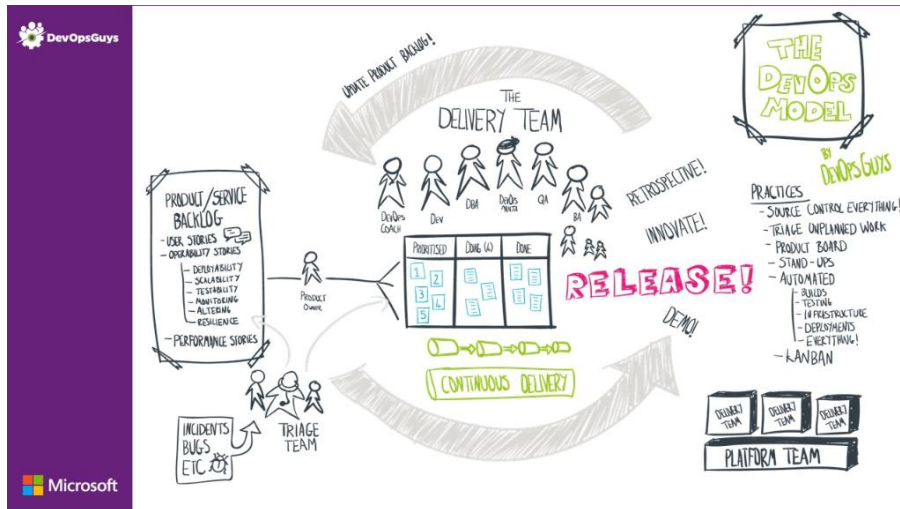 DevOpsGuys
UPDATE PRODUCT BACKLOG!
THE
DELIVERY TEAM
DEVOPS
COACH
DEV
DBA
DEVOPS
NINJA
QA
BA
RETROSPECTIVE!
INNOVATE!
RELEASE!
DEMO!
PRODUCT/SERVICE
BACKLOG
- USER STORIES
- OPERABILITY STORIES
- DEPLOYABILITY
- SCALABILITY
- TESTABILITY
- MONITORING
- ALTERING
- RESILIENCE
- PERFORMANCE STORIES
PRODUCT
OWNER
PRIORITISED
DOING (4)
DONE
1
2
3
4
5
CONTINUOUS DELIVERY
INCIDENTS
BUGS
ETC
TRIAGE
TEAM
THE
DEVOPS
MODEL
BY
DEVOPSGUYS
PRACTICES
- SOURCE CONTROL EVERYTHING!
- TRIAGE UNPLANNED WORK
- PRODUCT BOARD
- STAND-UPS
- AUTOMATED
- BUILDS
- TESTING
- INFRASTRUCTURE
- DEPLOYMENTS
- EVERYTHING!
- KANBAN
DELIVERY
TEAM
DELIVERY
TEAM
DELIVERY
TEAM
PLATFORM TEAM
Microsoft